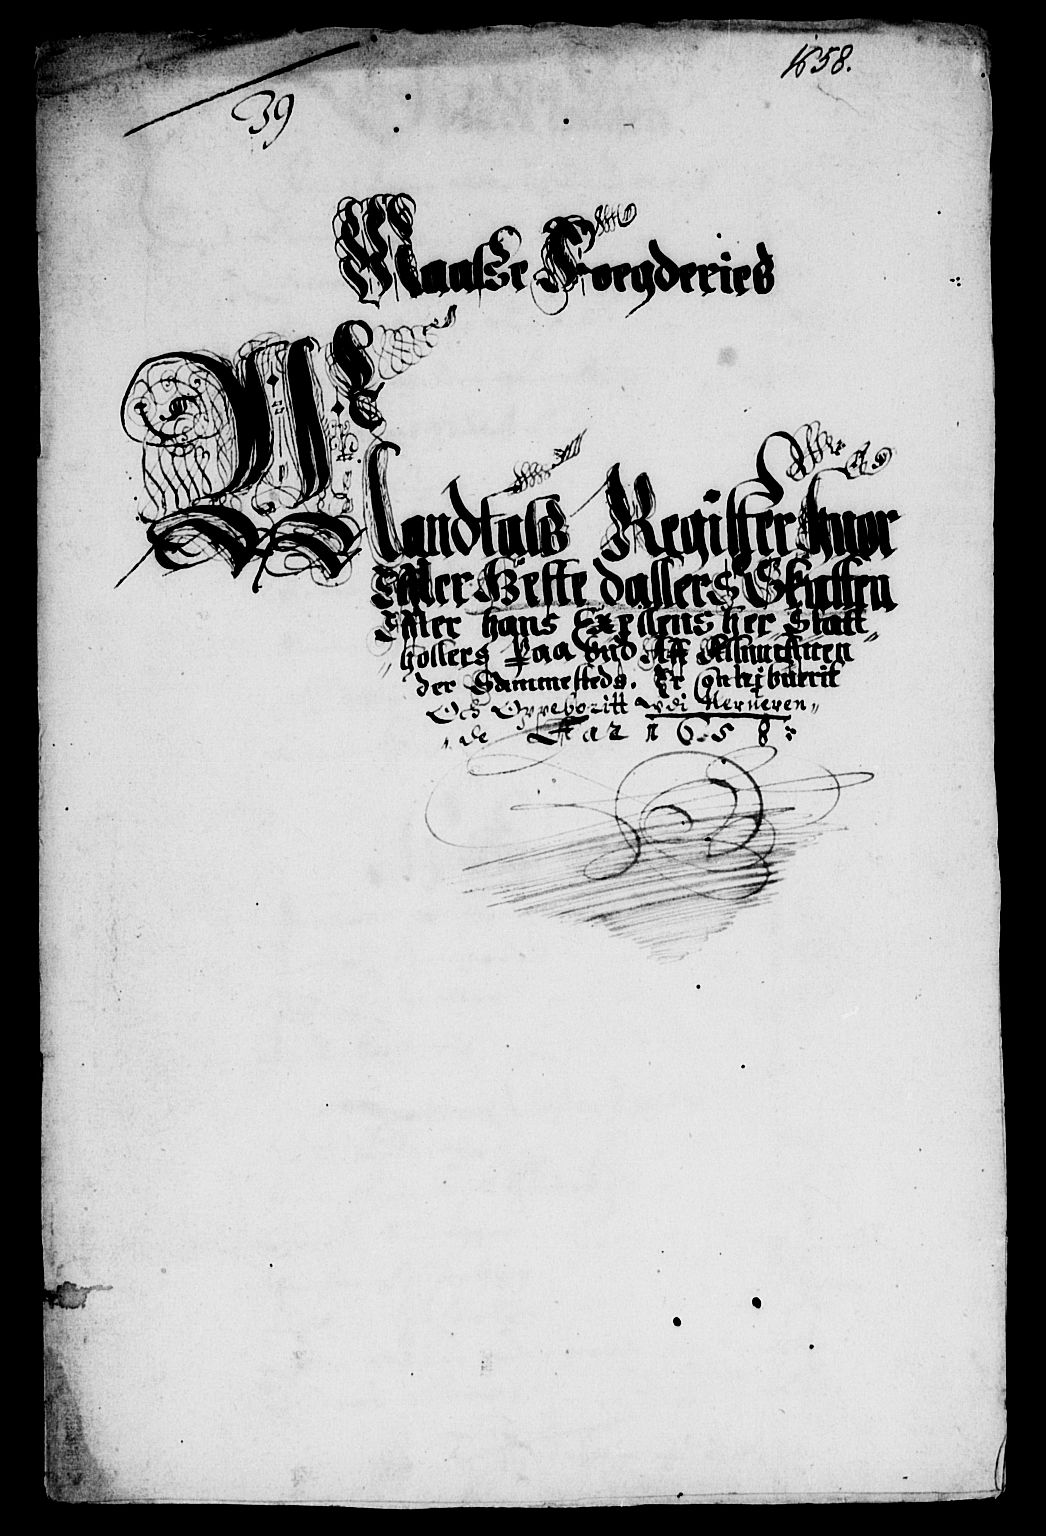 1658.
39
Maasse Foegderies
Mandtals Register huor
Effter Heste dallers Skatten
Effter hansExellens her Statt-
hollers Paa bud Aff Almuen
der Sammesteds. Er Contribuerit
Och Oppeboritt udi Nerueren-
de Aar 1658: